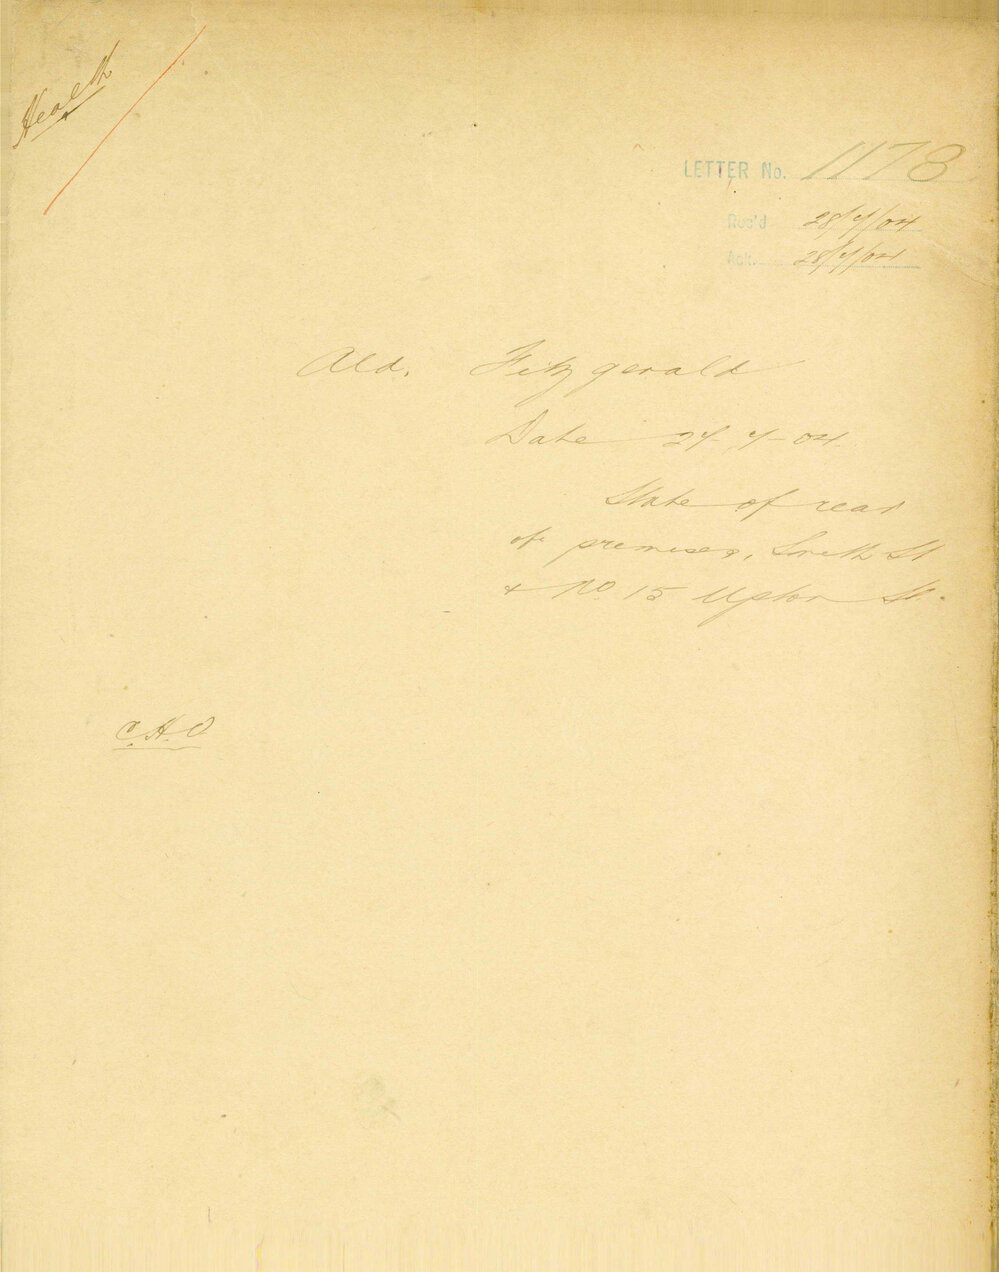 Health
LETTER No. 1178
Rec'd 28/7/04
Ack. 28/7/04
Ald. Fitzgerald
Date 27-7-04
State of rear
of premises, Smith St
& No 15 Upton St.
C.H.O